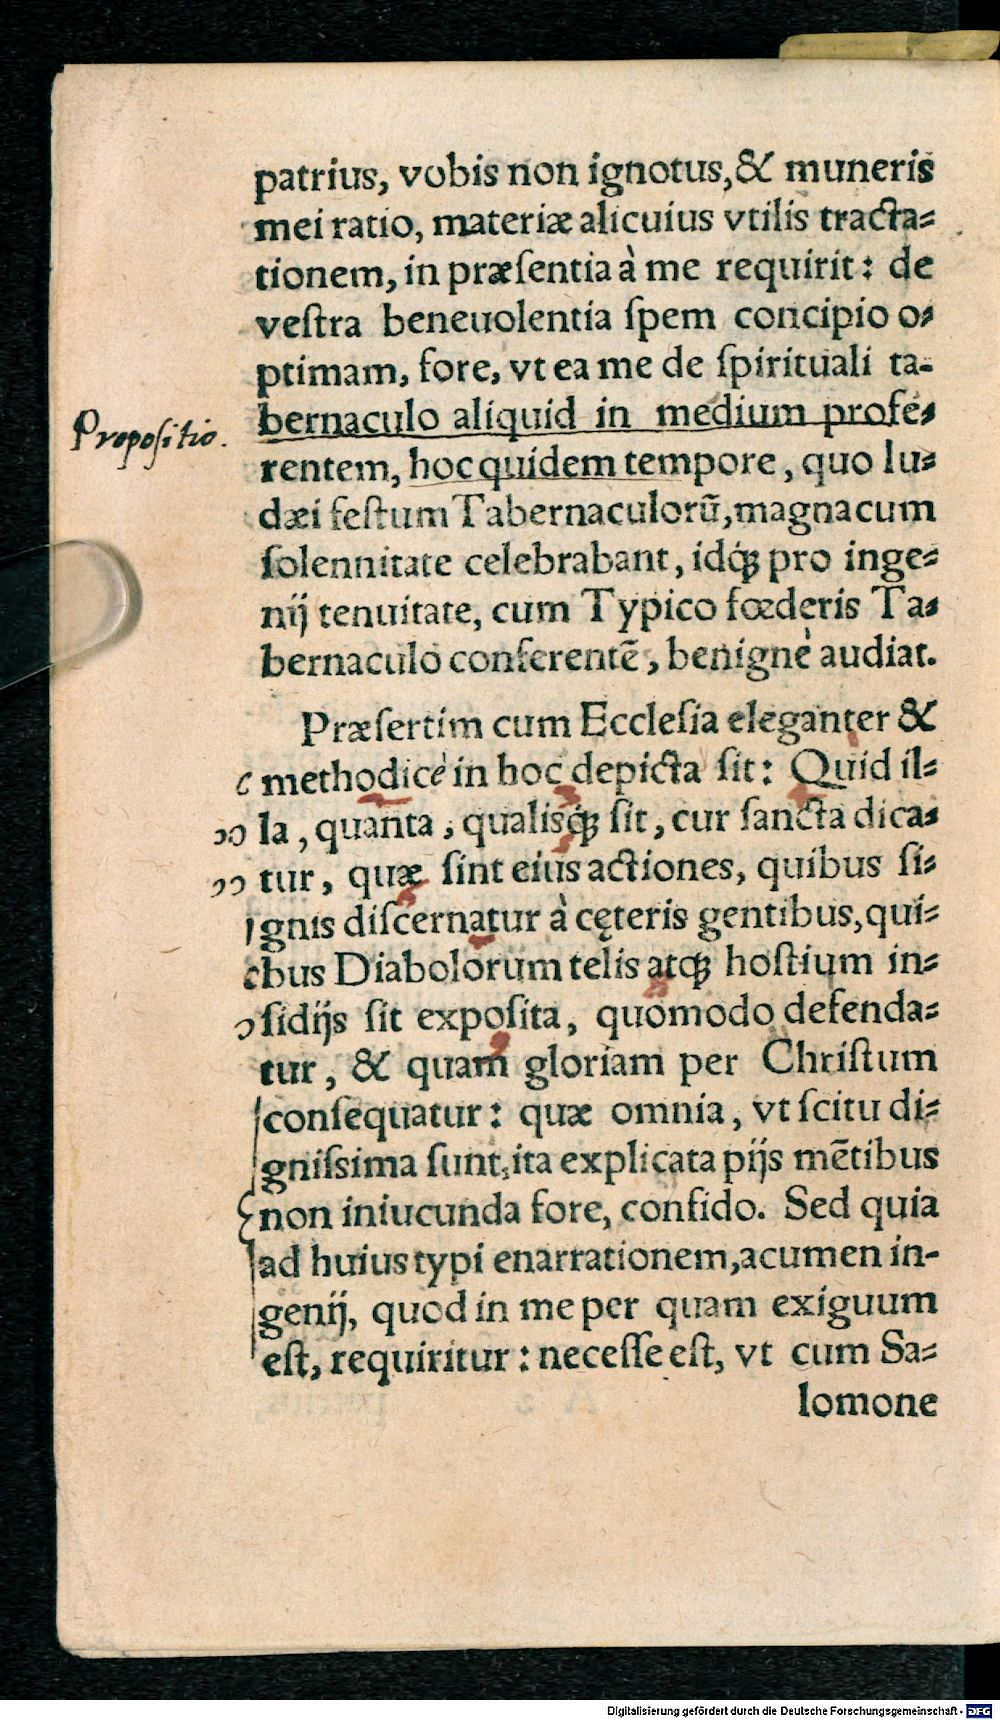 patrius, vobis non ignotus, & muneris
mei ratio, materiæ alicuius vtilis tracta-
tionem, in præſentia à me requirit: de
veſtra beneuolentia ſpem concipio o-
ptimam, fore, vt ea me de ſpirituali ta-
bernaculo aliquid in medium profe-
Propoſitio.
rentem, hoc quidem tempore, quo Iu-
dæi feſtum Tabernaculorũ, magna cum
ſolennitate celebrabant, idq́; pro inge-
nij tenuitate, cum Typico fœderis Ta-
bernaculo conferentẽ, benignè audiat.
Præſertim cum Eccleſia eleganter &
methodicè in hoc depicta ſit: Quid il-
la, quanta, qualisq́; ſit, cur ſancta dica-
tur, quæ ſint eius actiones, quibus ſi-
gnis diſcernatur à cęteris gentibus, qui-
bus Diabolorum telis atq; hoſtium in-
ſidijs ſit expoſita, quomodo defenda-
tur, & quam gloriam per Chriſtum
conſequatur: quæ omnia, vt ſcitu di-
gniſsima ſunt, ita explicata pijs mẽtibus
non iniucunda fore, confido. Sed quia
ad huius typi enarrationem, acumen in-
genij, quod in me per quam exiguum
eſt, requiritur: neceſſe eſt, vt cum Sa-
lomone
Digitalisierung gefördert durch die Deutsche Forschungsgemeinschaft - DFG